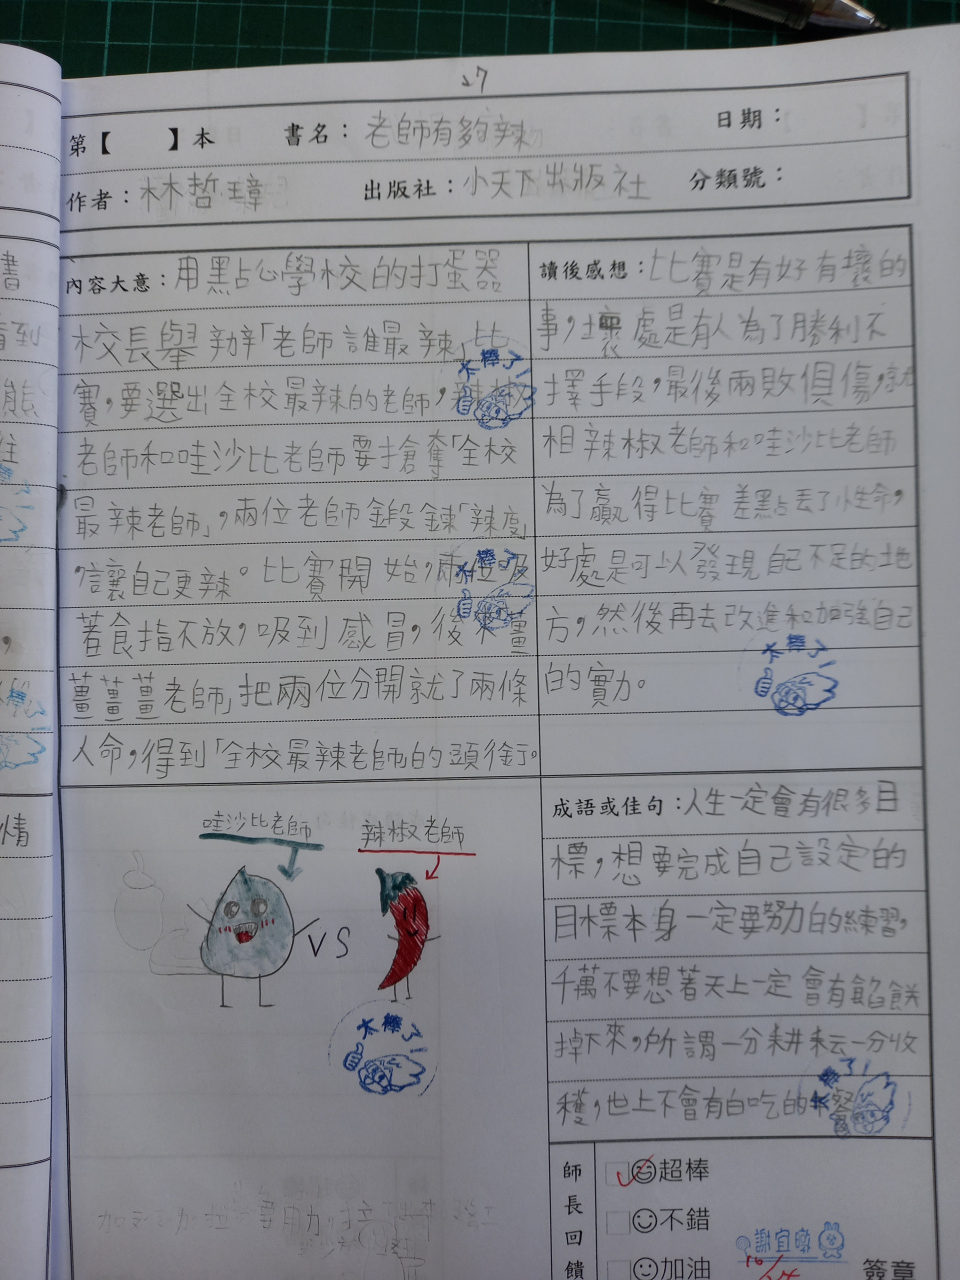 27
第【 】本 書名：老師有多夠辣 日期：
作者：林哲璋 出版社：小天下出版社 分類號：
內容大意：用點心學校的打蛋器
校長舉辦「老師誰最辣」比
賽，要選出全校最辣的老師，辣椒
老師和哇沙比老師要搶奪「全校
最辣老師」，兩位老師鍛鍊「辣度」
，讓自己更辣。比賽開始，兩位吸
著食指不放，吸到感冒，後來「薑
薑薑薑老師」把兩位分開就了兩條
人命，得到「全校最辣老師」的頭銜。
讀後感想：比賽是有好有壞的
事，壞處是有人為了勝利不
擇手段，最後兩敗俱傷，就
相辣椒老師和哇沙比老師
為了贏得比賽差點丟了小生命，
好處是可以發現自己不足的地
方，然後再去改進和加強自己
的實力。
哇沙比老師
辣椒老師
VS
成語或佳句：人生一定會有很多目
標，想要完成自己設定的
目標本身一定要努力的練習，
千萬不要想著天上一定會有餡餅
掉下來，所謂一分耕耘一分收
穫，世上不會有白吃的
師長回饋
超棒
不錯
加油
謝宜
簽章
太棒了!
太棒了!
太棒了!
太棒了!
太棒了!